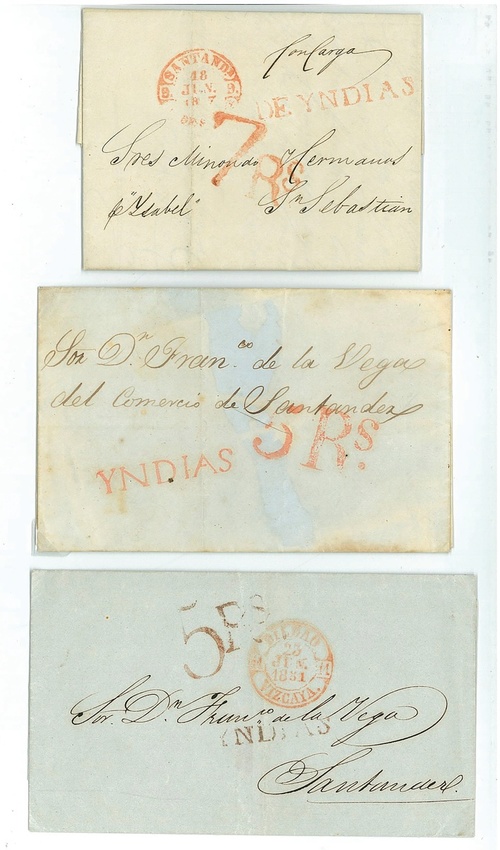 Con Carga
SANTAND
18
JUN.
DE YNDIAS
7 Rs
Sres Minondo Hermanos
p "Ysabel" Sn Sebastian
Sor Dn. Franco. de la Vega
del Comercio de Santander
YNDIAS 5 Rs.
5 Rs
BILBAO
23
JUN.
1851
VIZCAYA.
Sor. Dn Franco de la Vega
YNDIAS
Santander.